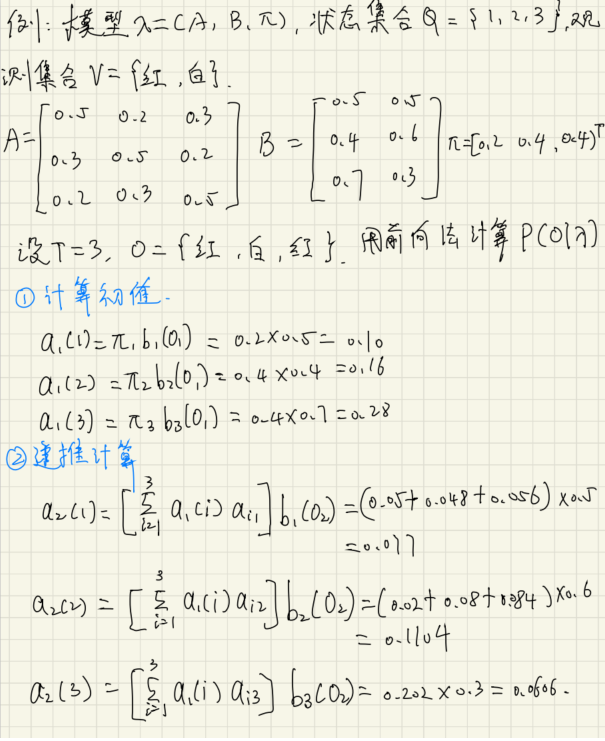 例1: 模型 λ=(A, B, π), 状态集合 Q = {1, 2, 3}, 观
测集合 V = {红, 白}.
A = [0.5 0.2 0.3; 0.3 0.5 0.2; 0.2 0.3 0.5] B = [0.5 0.5; 0.4 0.6; 0.7 0.3] π=[0.2 0.4, 0.4)^T
设T=3, O={红, 白, 红}. 用前向法计算 P(O|λ)
① 计算初值.
a₁(1) = π₁ b₁(O₁) = 0.2×0.5 = 0.10
a₁(2) = π₂ b₂(O₁) = 0.4 ×0.4 = 0.16
a₁(3) = π₃ b₃(O₁) = 0.4×0.7 = 0.28
② 递推计算
a₂(1) = [∑_{i=1}^{3} a₁(i) a_{i1}] b₁(O₂) = (0.05+0.048+0.056) ×0.5
= 0.077
a₂(2) = [∑_{i=1}^{3} a₁(i) a_{i2}] b₂(O₂) = (0.02+0.08+0.084) ×0.6
= 0.1104
a₂(3) = [∑_{i=1}^{3} a₁(i) a_{i3}] b₃(O₂) = 0.202 ×0.3 = 0.0606.